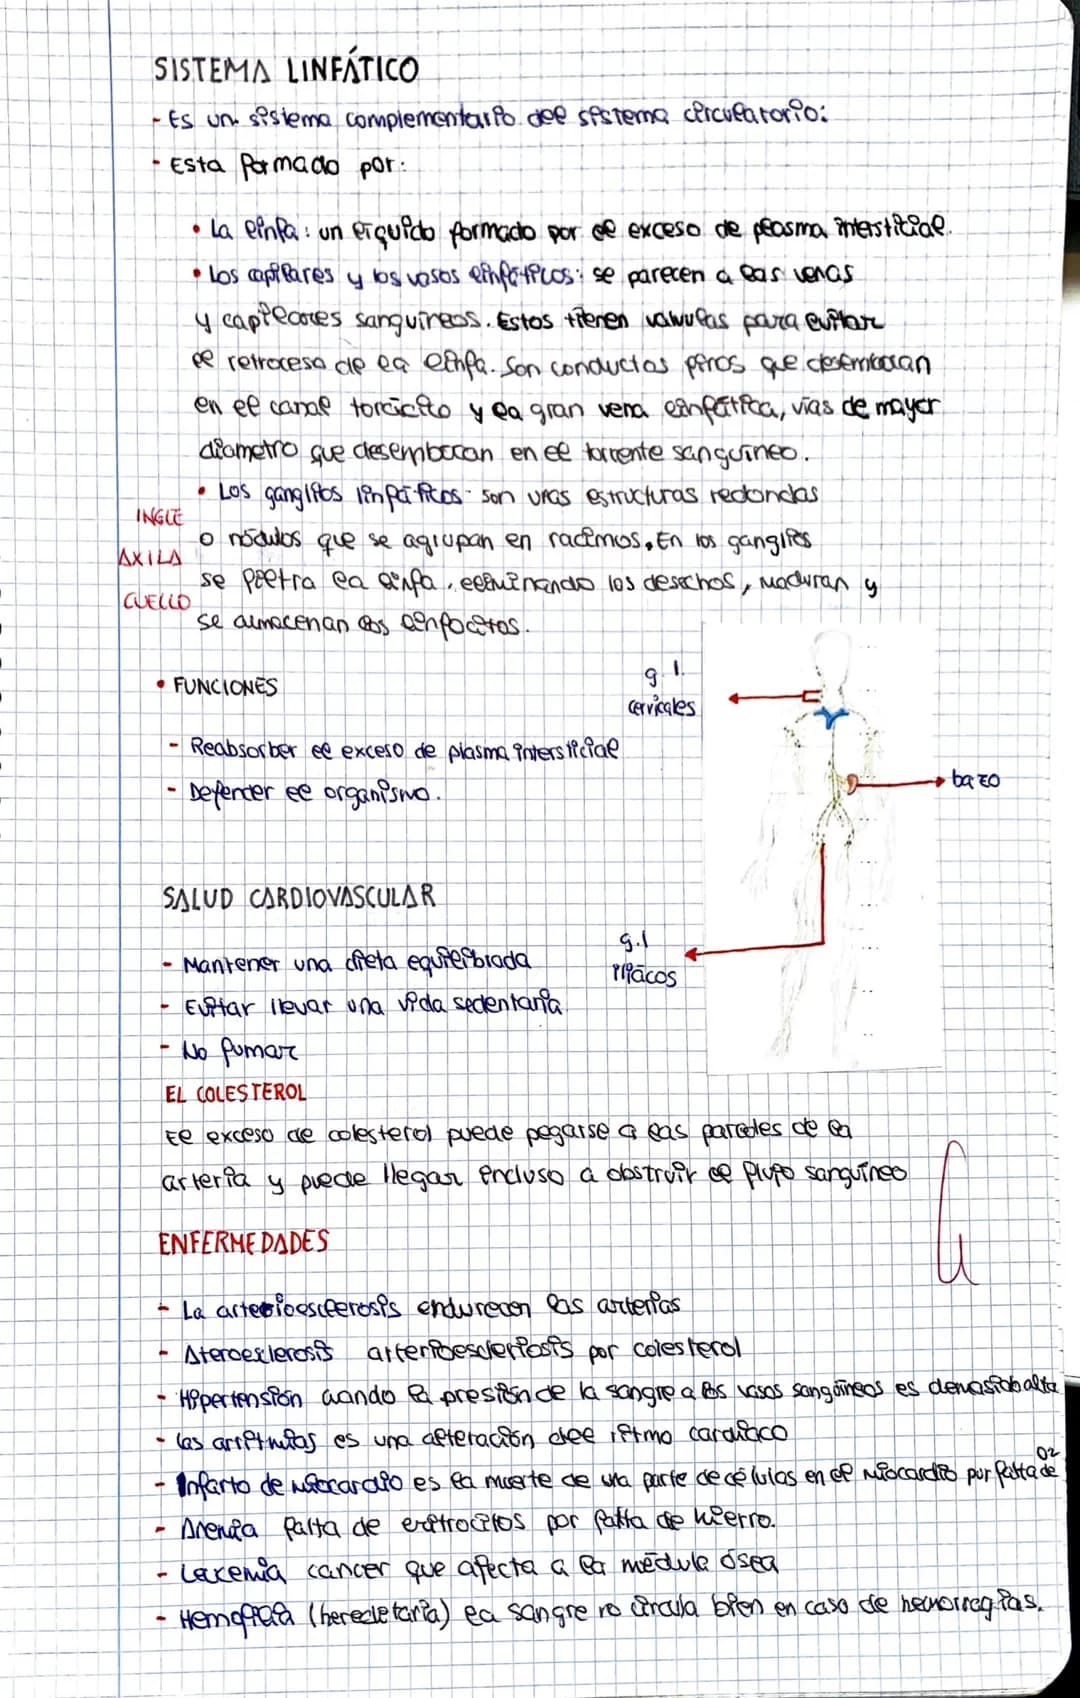 SISTEMA LINFÁTICO
- Es un sistema complementario del sistema circulatorio:
- Esta formado por:
• La linfa: un líquido formado por el exceso de plasma intersticial.
• Los capilares y los vasos linfáticos: se parecen a las venas
y capilares sanguíneos. Estos tienen valvulas para evitar
el retroceso de la linfa. Son conductos finos que desembocan
en el canal torácico y la gran vena linfática, vías de mayor
diametro que desembocan en el torrente sanguíneo.
• Los ganglios linfáticos son unas estructuras redondas
INGLE
o nódulos que se agrupan en racimos. En los ganglios
AXILA
se filtra la linfa, eliminando los desechos, maduran y
CUELLO
se almacenan los linfocitos.
• FUNCIONES
g. l.
cervicales
- Reabsorber el exceso de plasma intersticial
- Defender el organismo.
bazo
SALUD CARDIOVASCULAR
- Mantener una dieta equilibrada
g.l
ilíacos
- Evitar llevar una vida sedentaria
- No fumar
EL COLESTEROL
El exceso de colesterol puede pegarse a las paredes de la
arteria y puede llegar incluso a obstruir el flujo sanguíneo
ENFERMEDADES
- La arterioesclerosis endurecen las arterias
- Ateroesclerosis arterioesclerosis por colesterol
- Hipertensión cuando la presión de la sangre a los vasos sangüineos es demasiado alta
- Las arritmias es una alteración del ritmo cardíaco
- Infarto de miocardio es la muerte de una parte de células en el miocardio por falta de O2
- Anemia falta de eritrocitos por falta de hierro.
- Leucemia cancer que afecta a la médula ósea
- Hemofilia (heredetaria) la sangre no circula bien en caso de hemorragias.